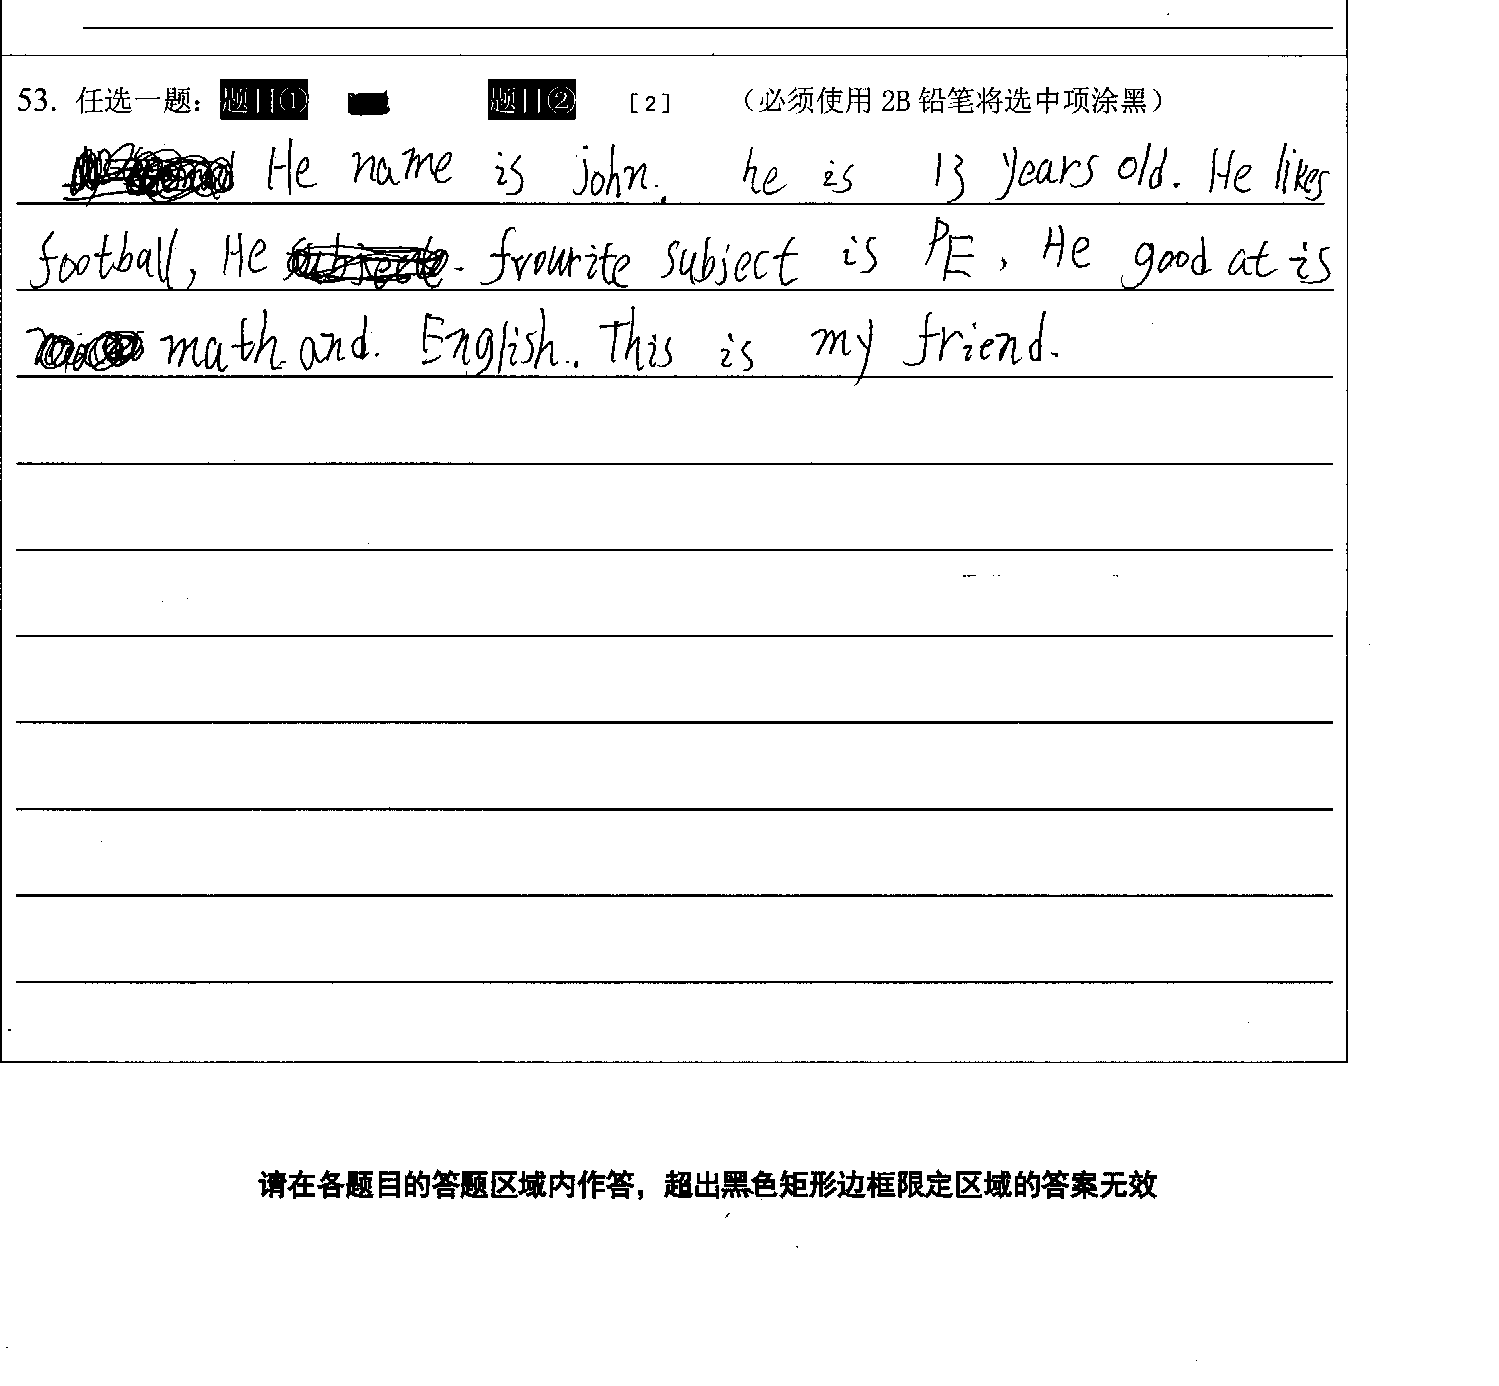 53. 任选一题： 题目① 题目② [2] （必须使用 2B 铅笔将选中项涂黑）
He name is john. he is 13 years old. He likes
football, He frourite subject is PE, He good at is
math and. English. This is my friend.
请在各题目的答题区域内作答，超出黑色矩形边框限定区域的答案无效